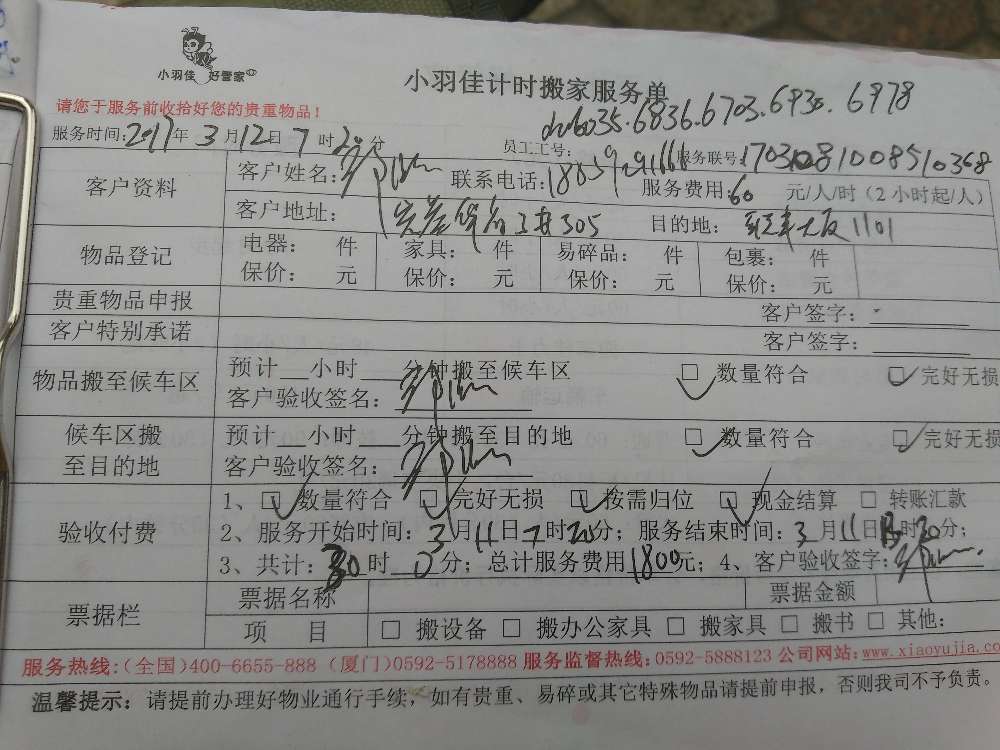 小羽佳 好管家
小羽佳计时搬家服务单
请您于服务前收拾好您的贵重物品！
6035.6836.6703.6930.6978
服务时间:2017年3月12日7时20分 员工工号: 服务联号:
客户资料 客户姓名: 联系电话: 服务费用:60元/人/时（2小时起/人）
客户地址: 305 目的地: 1101
物品登记 电器: 件 家具: 件 易碎品: 件 包裹: 件
保价: 元 保价: 元 保价: 元 保价: 元
贵重物品申报 客户签字:
客户特别承诺 客户签字:
物品搬至候车区 预计__小时__分钟搬至候车区 □数量符合 □完好无损
客户验收签名:
候车区搬至目的地 预计__小时__分钟搬至目的地 □数量符合 □完好无损
客户验收签名:
验收付费 1、□数量符合 □完好无损 □按需归位 □现金结算 □转账汇款
2、服务开始时间:3月11日7时20分；服务结束时间:3月11日 时30分；
3、共计:30时0分；总计服务费用1800元；4、客户验收签字:
票据栏 票据名称 票据金额
项 目 □搬设备 □搬办公家具 □搬家具 □搬书 □其他:
服务热线:(全国)400-6655-888 (厦门)0592-5178888 服务监督热线:0592-5888123 公司网站:www.xiaoyujia.co
温馨提示：请提前办理好物业通行手续，如有贵重、易碎或其它特殊物品请提前申报，否则我司不予负责。